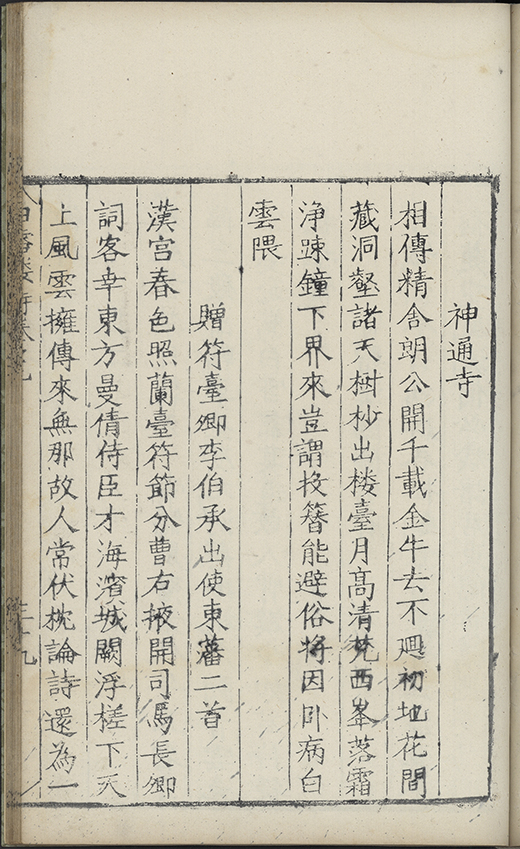 神通寺
相傳精舍朗公開千載金牛去不廻初地花間
藏洞壑諸天樹杪出楼臺月高清梵西峯落霜
浄踈鐘下界來豈謂投簪能避俗將因卧病白
雲隈
贈符臺卿李伯承出使東藩二首
漢宫春色照蘭臺符節分曹右掖開司馬長卿
詞客幸東方曼倩侍臣才海濱城闕浮槎下天
上風雲擁傳來無那故人常伏枕論詩還為一